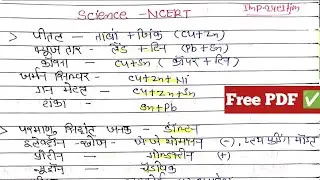 Science - NCERT
Imp-24 Elfjm
> पीतल - ताँबा + जिंक (Cu+Zn)
फ्यूज तार - लैड + टिन (Pb+Sn)
काँसा - Cu+Sn (कॉपर + टिन)
जर्मन सिल्वर - Cu+Zn+Ni
गन मेटल - Cu+Zn+Sn
टांका - Sn+Pb
Free PDF ✅
> परमाणु सिद्धांत जनक - डॉल्टन
इलेक्ट्रॉन - खोज - जे जे थॉमसन (-),
प्रोटॉन - गोल्डस्टीन (+)
न्यूट्रॉन - चैडविक